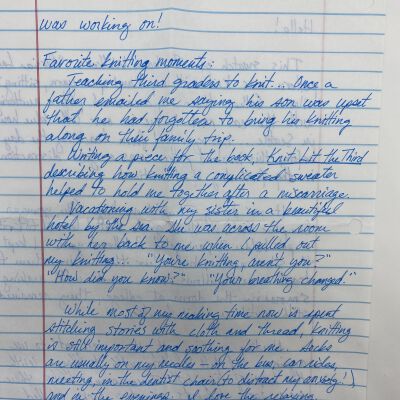 was working on!
Favorite knitting moments:
Teaching third graders to knit... Once a
father emailed me saying his son was upset
that he had forgotten to bring his knitting
along on their family trip.
Writing a piece for the book, Knit Lit the Third
describing how knitting a complicated sweater
helped to hold me together after a miscarriage.
Vacationing with my sister in a beautiful
hotel by the sea. She was across the room
with her back to me when I pulled out
my knitting... "You're knitting, aren't you?"
"How did you know?" "Your breathing changed."
While most of my making time now is spent
stitching stories with cloth and thread, knitting
is still important and soothing for me. Socks
are usually on my needles - on the bus, car rides,
meeting, in the dentist chair (to distract my anxiety!)
and in the evenings. I love the relaxing